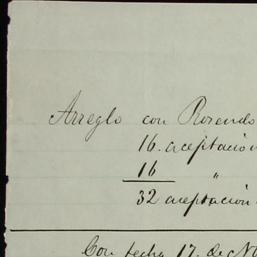 Arreglo con Rosendo
16. aceptación
16 "
32 aceptación
Con fecha 17. de